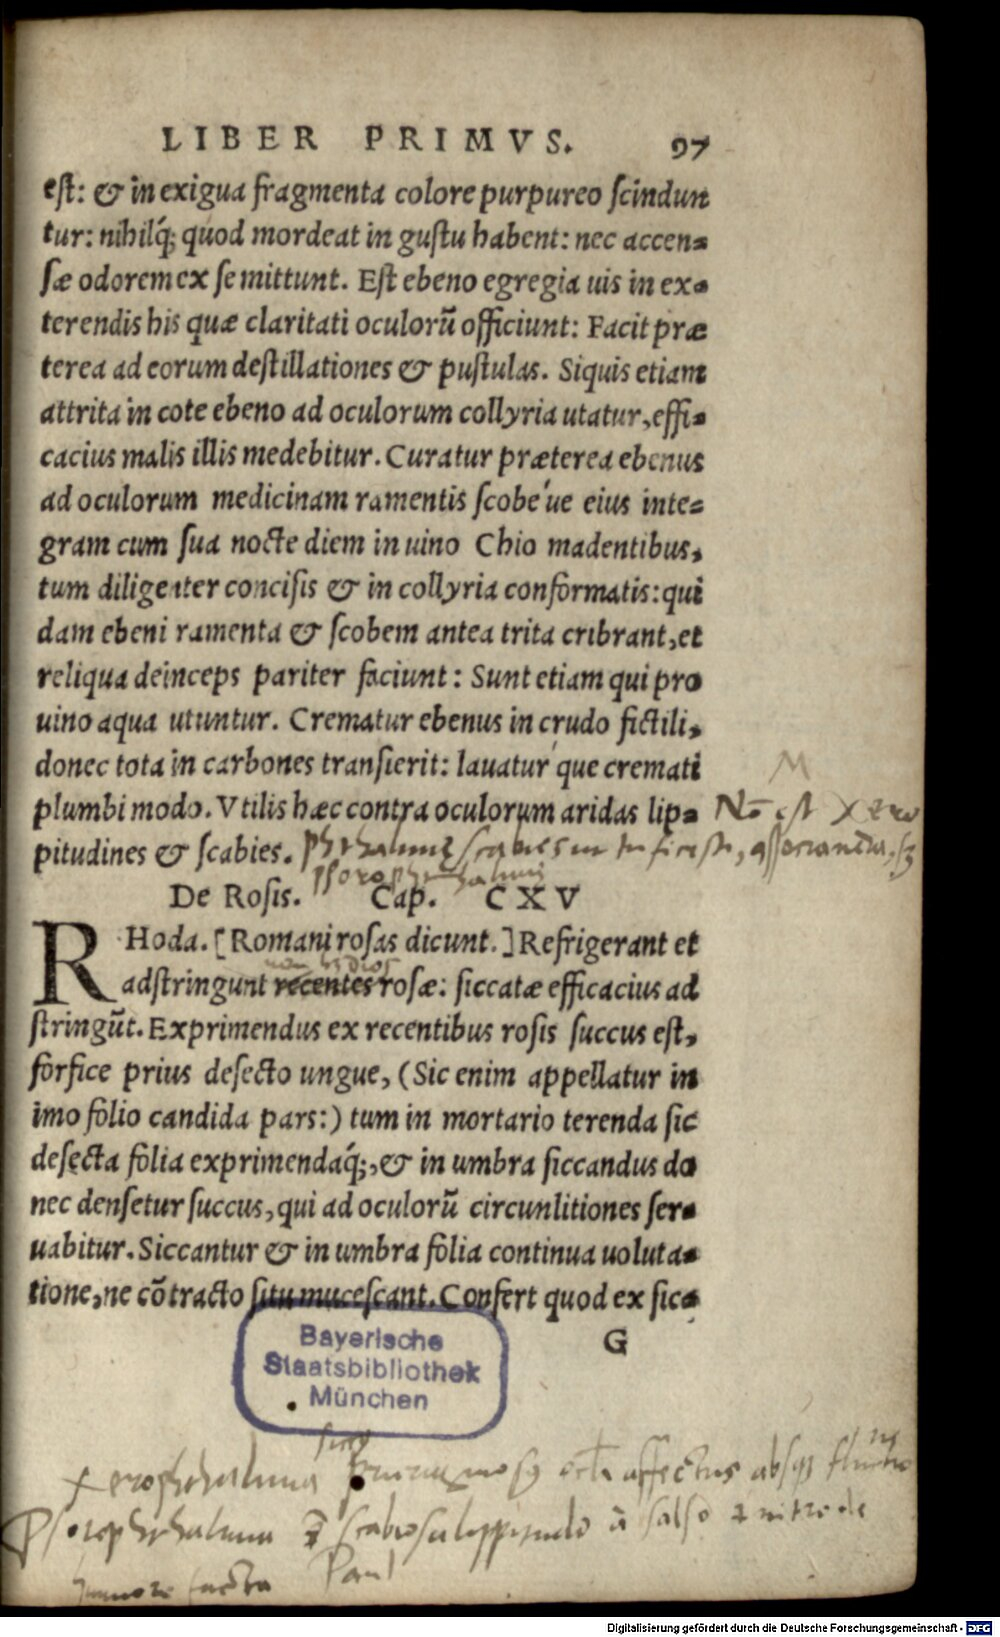 LIBER PRIMVS. 97
est: & in exigua fragmenta colore purpureo scindun
tur: nihilq́; quod mordeat in gustu habent: nec accen=
sæ odorem ex se mittunt. Est ebeno egregia uis in ex=
terendis his quæ claritati oculorũ officiunt: Facit præ
terea ad eorum destillationes & pustulas. Siquis etiam
attrita in cote ebeno ad oculorum collyria utatur, effi=
cacius malis illis medebitur. Curatur præterea ebenus
ad oculorum medicinam ramentis scobe´ue eius inte=
gram cum sua nocte diem in uino Chio madentibus,
tum diligenter concisis & in collyria conformatis: qui
dam ebeni ramenta & scobem antea trita cribrant, et
reliqua deinceps pariter faciunt: Sunt etiam qui pro
uino aqua utuntur. Crematur ebenus in crudo fictili,
donec tota in carbones transierit: lauatur´que cremati
plumbi modo. Vtilis hæc contra oculorum aridas lip=
pitudines & scabies.
De Rosis. Cap. CXV
RHoda. [Romani rosas dicunt.] Refrigerant et
adstringunt recentes rosæ: siccatæ efficacius ad
stringũt. Exprimendus ex recentibus rosis succus est,
forfice prius desecto ungue, (Sic enim appellatur in
imo folio candida pars:) tum in mortario terenda sic
desecta folia exprimendaq́;, & in umbra siccandus do
nec densetur succus, qui ad oculorũ circunlitiones ser=
uabitur. Siccantur & in umbra folia continua uoluta=
tione, ne cõtracto situ mucescant. Confert quod ex sic=
G
Bayerische
Staatsbibliothek
München
affectus absq
à salso
Paul
Digitalisierung gefördert durch die Deutsche Forschungsgemeinschaft - DFG